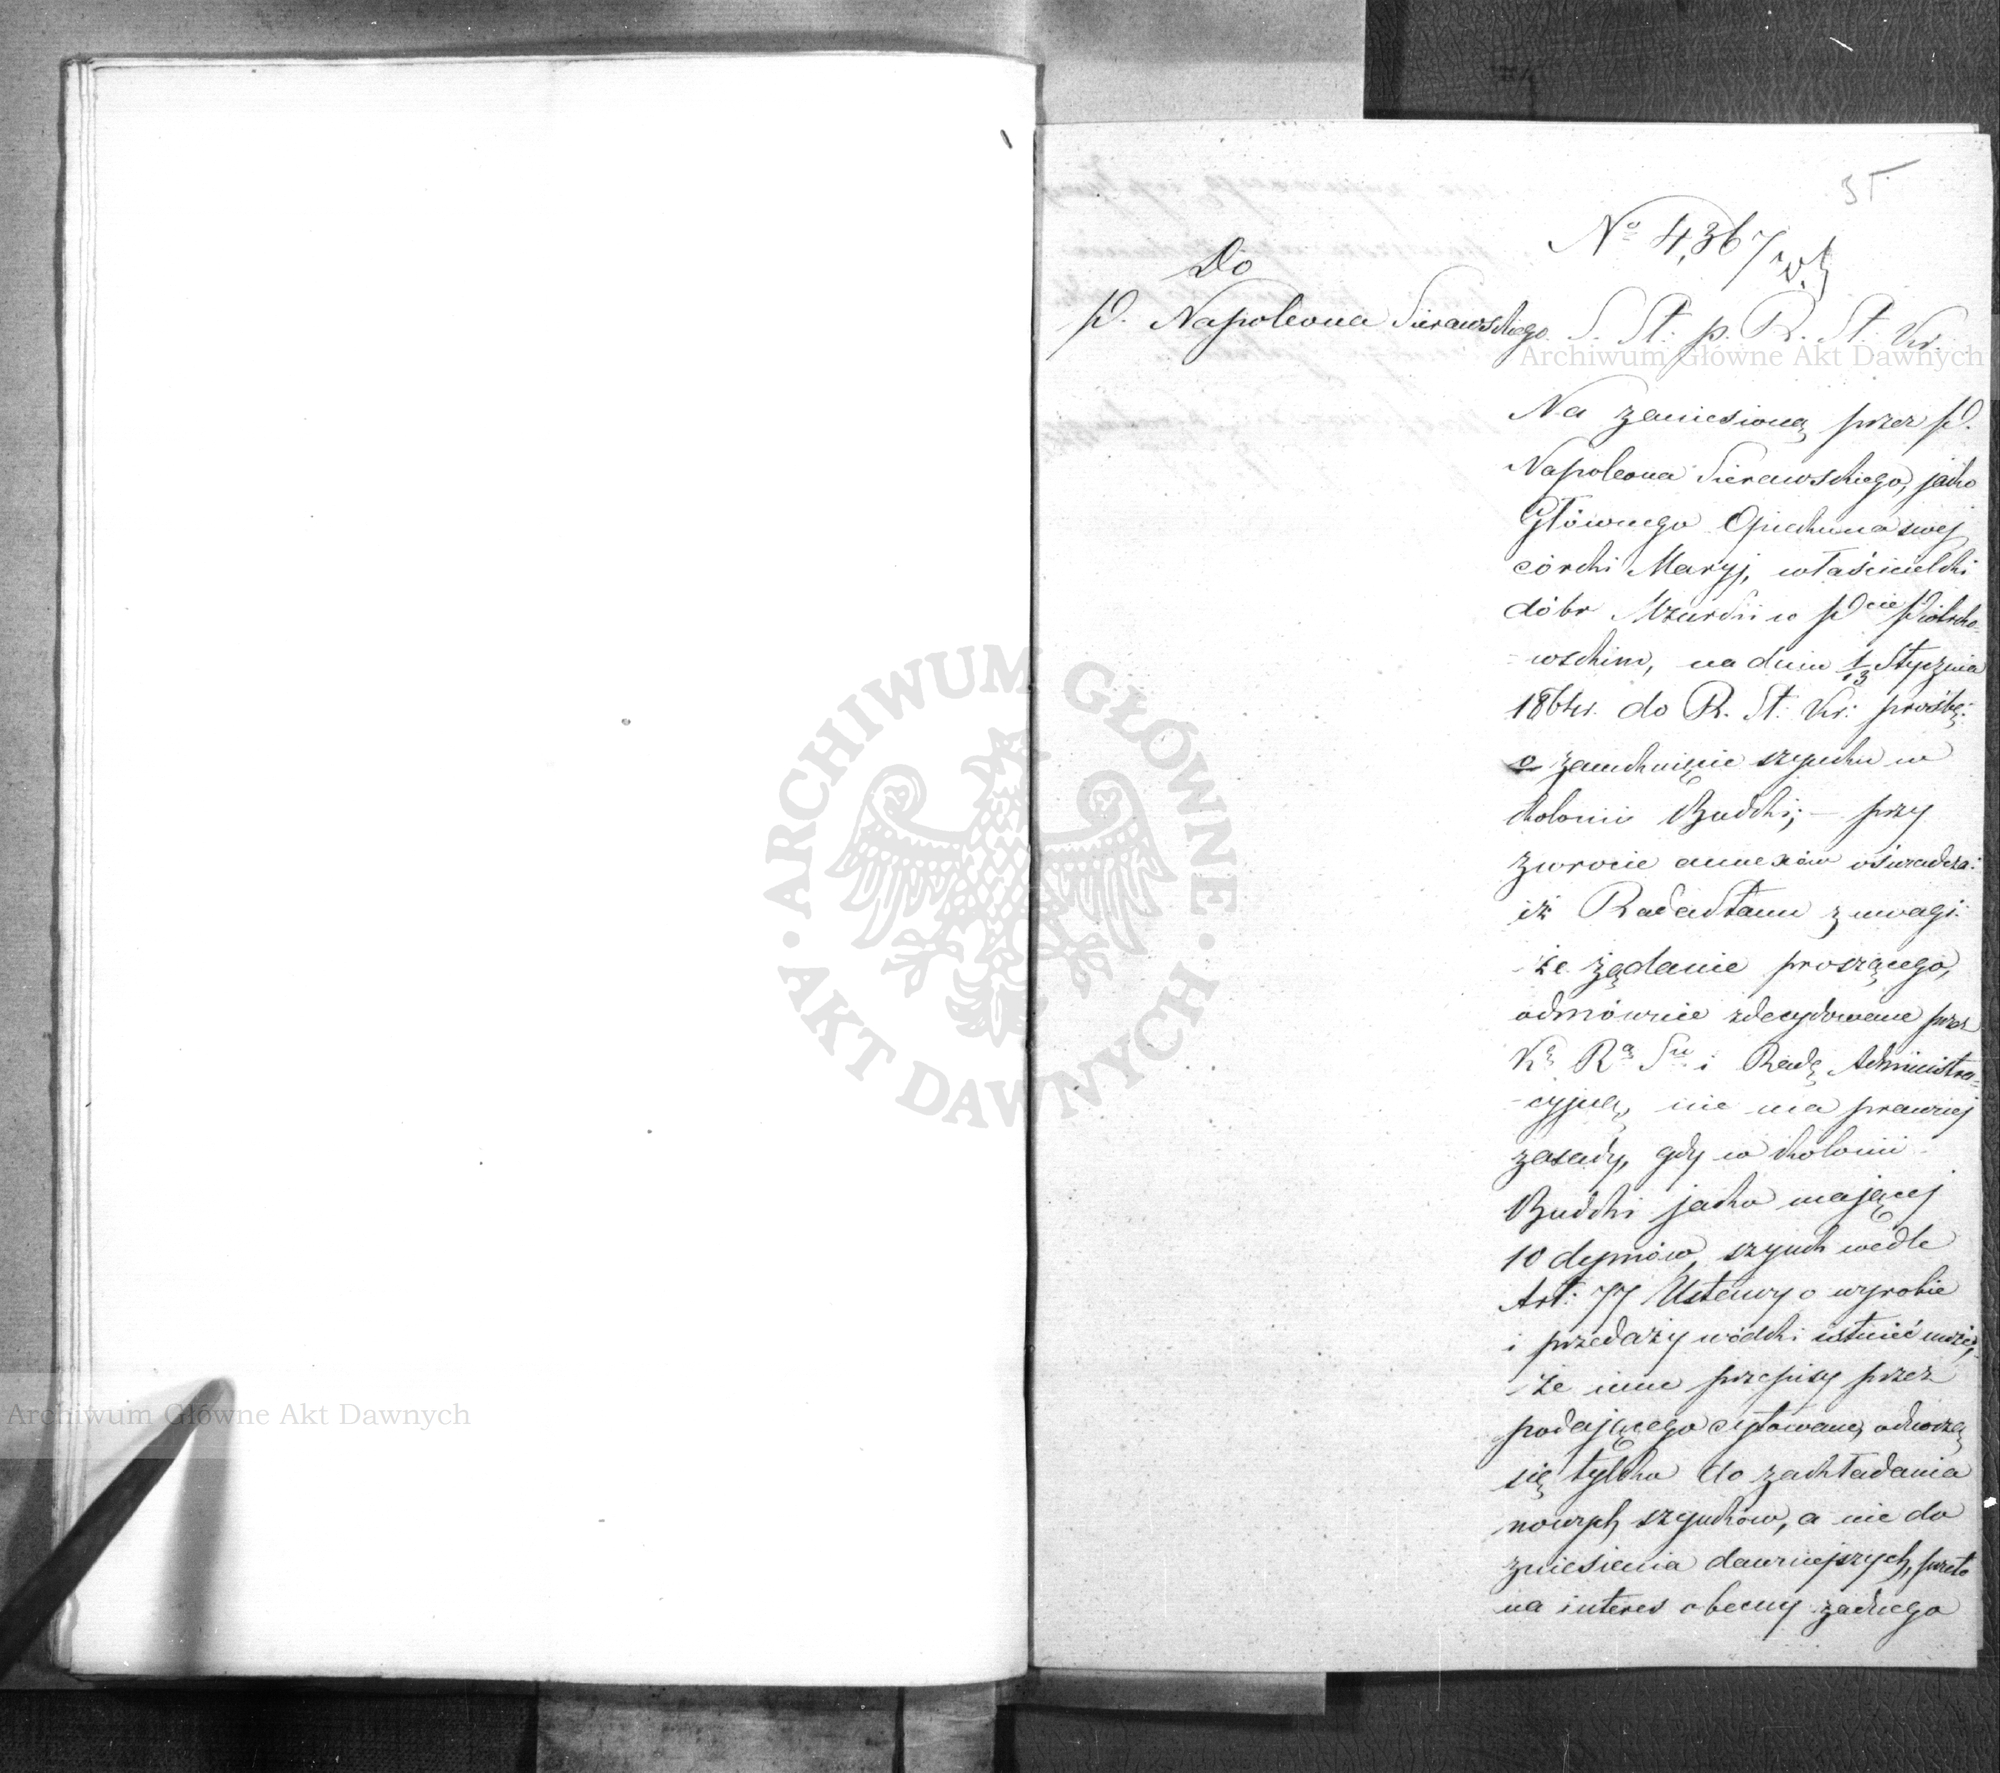 35
Nº 4,367
Do
P. Napoleona Sierawskiego.
S. St: p. R. St. Kr.
Na zaniesioną przez P.
Napoleona Sierawskiego, jako
Głównego Opiekuna swej
córki Maryj, właścicielki
dóbr Mzurki w Pcie Piotrko-
-wskim, na dniu 1/13 Stycznia
1864 r. do R. St. Kr: prośbę
o zamknięcie szynku w
kolonii Budki; – przy
zwrocie annexów oświadcza:
iż Rada Stanu z uwagi:
że żądanie proszącego,
odmównie zdecydowane przez
K. R. S. i Radę Administra-
-cyjną, nie ma prawnej
zasady, gdy w kolonii
Budki jako mającej
10 dymów, szynk wedle
Art: 77 Ustawy o wyrobie
i przedaży wódki istnieć może,
że inne przepisy przez
podającego cytowane, odnoszą
się tylko do zakładania
nowych szynków, a nie do
zniesienia dawniejszych, przeto
na interes obecny żadnego
ARCHIWUM GŁÓWNE · AKT DAWNYCH ·
Archiwum Główne Akt Dawnych
Archiwum Główne Akt Dawnych